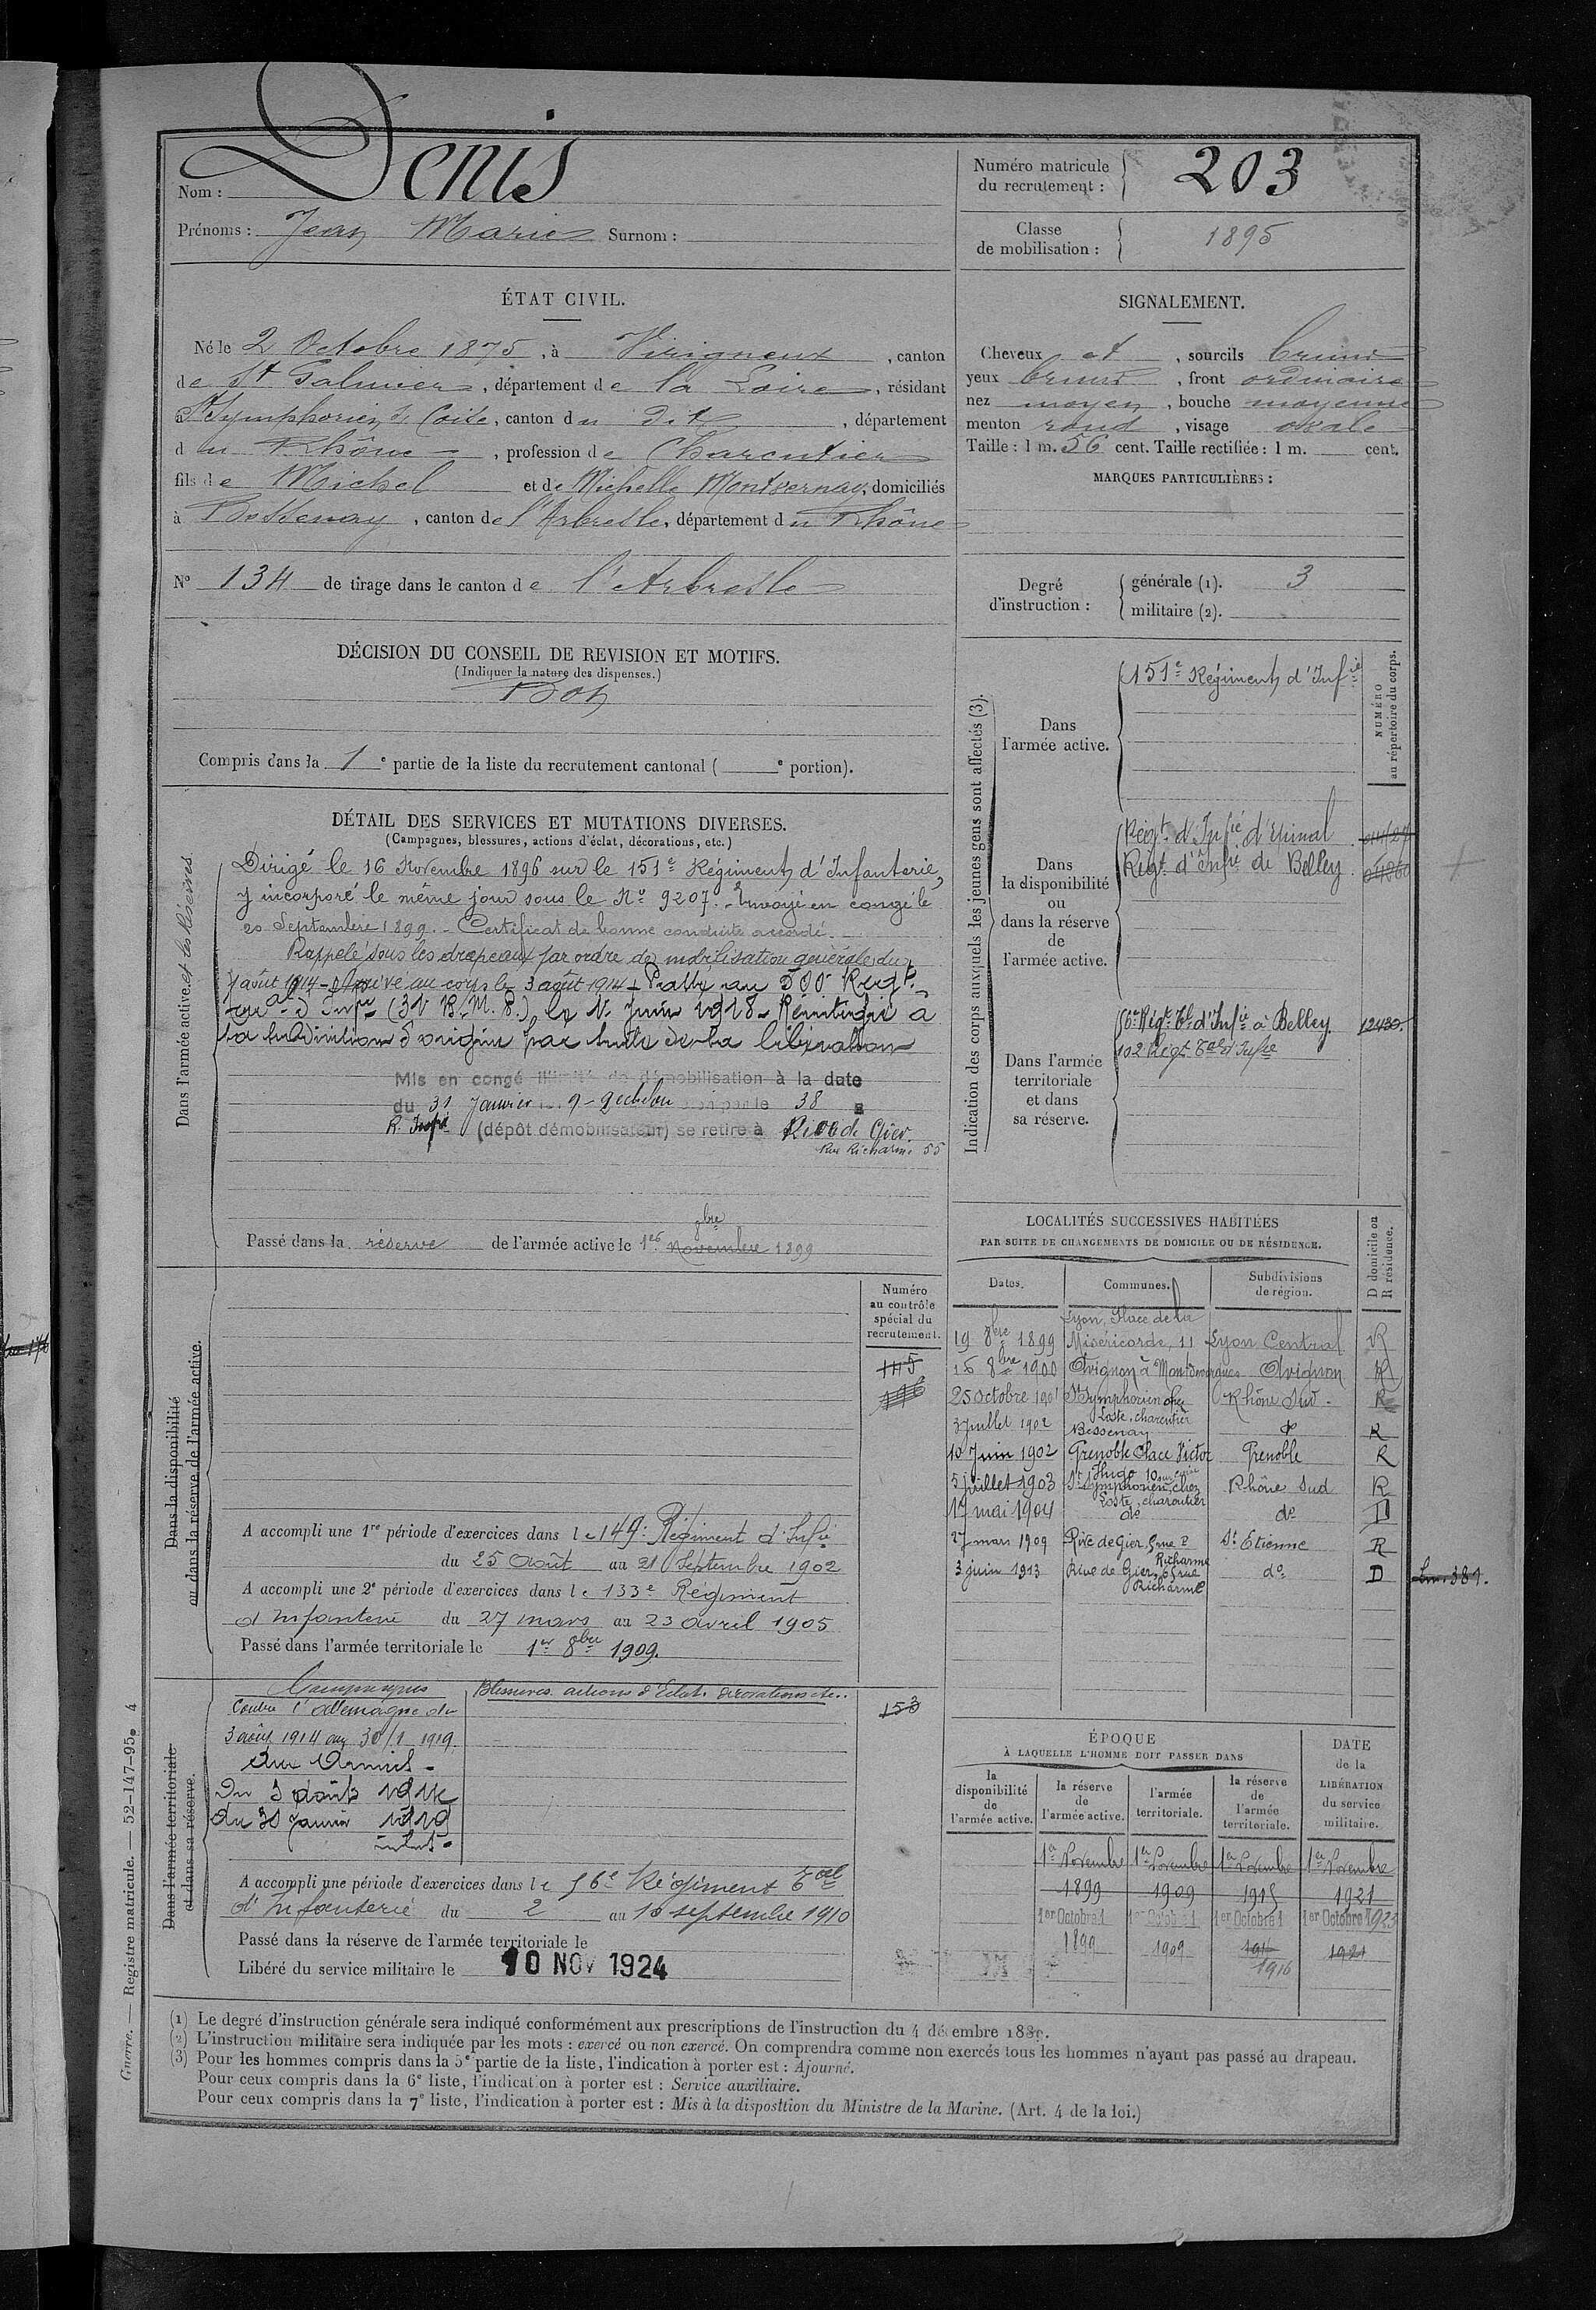 Denis
Nom :
Prénoms : Jean Marie Surnom :
Numéro matricule du recrutement : 203
Classe de mobilisation : 1895
ÉTAT CIVIL.
Né le 2 Octobre 1875, à Virigneux, canton
de St Galmier, département de la Loire, résidant
St Symphorien s/ Coise, canton du dit, département
du Rhône, profession de Charcutier
fils de Michel et de Michelle Montvernay, domiciliés
à Bessenay, canton de l'Arbresle, département du Rhône
N° 134 de tirage dans le canton de l'Arbresle
SIGNALEMENT.
Cheveux et, sourcils bruns
yeux bruns, front ordinaire
nez moyen, bouche moyenne
menton rond, visage ovale
Taille : 1 m. 56 cent. Taille rectifiée : 1 m. cent.
MARQUES PARTICULIÈRES :
Degré d'instruction : générale (1). 3
militaire (2).
DÉCISION DU CONSEIL DE REVISION ET MOTIFS.
(Indiquer la nature des dispenses.)
Bon
Compris dans la 1e partie de la liste du recrutement cantonal ( e portion).
DÉTAIL DES SERVICES ET MUTATIONS DIVERSES.
(Campagnes, blessures, actions d'éclat, décorations, etc.)
Dans l'armée active et les Réserves
Dirigé le 16 Novembre 1896 sur le 151e Régiment d'Infanterie,
y incorporé le même jour sous le N° 9207. Envoyé en congé le
20 Septembre 1899. - Certificat de bonne conduite accordé.
Rappelé sous les drapeaux par ordre de mobilisation générale du
1 août 1914 - Arrivé au corps le 3 août 1914 - Passé au 500e Regt
d'Infie (31 B.M.P.), le 1r Juin 1918 - Réintégré à
sa subdivision d'origine par suite de sa libération
Mis en congé illimité de démobilisation à la date
du 31 Janvier 19 - 9 échelon par le 38 e
R. Infie (dépôt démobilisateur) se retire à Rive de Gier.
Rue Richarme 55
8bre
Passé dans la réserve de l'armée active le 1er Novembre 1899
Indication des corps auxquels les jeunes gens sont affectés (3).
NUMÉRO au répertoire du corps.
Dans l'armée active.
151e Régiment d'Infie
Dans la disponibilité ou dans la réserve de l'armée active.
Régt d'Infie d'Epinal
Régt d'Infie de Belley
Dans l'armée territoriale et dans sa réserve.
56e Régt Tal d'Infie à Belley 12430
102 Régt Tal d'Infie
Dans la disponibilité
ou dans la réserve de l'armée active.
Numéro
au contrôle
spécial du
recrutement.
A accompli une 1re période d'exercices dans le 149e Régiment d'Infie
du 25 Août au 21 Septembre 1902
A accompli une 2e période d'exercices dans le 133e Régiment
d'Infanterie du 27 mars au 23 avril 1905
Passé dans l'armée territoriale le 1er 8bre 1909.
LOCALITÉS SUCCESSIVES HABITÉES
PAR SUITE DE CHANGEMENTS DE DOMICILE OU DE RÉSIDENCE.
D domicile ou R résidence.
Dates. Communes. Subdivisions de région.
19 8bre 1899 Lyon, Place de la Miséricorde, 11 Lyon Central R
16 8bre 1900 Avignon à Montdevergues Avignon R
25 octobre 1901 St Symphorien chez Loste, charcutier Rhône Sud R
3 Juillet 1902 Bessenay do R
10 Juin 1902 Grenoble Place Victor Hugo 10 Grenoble R
5 juillet 1903 St Symphorien sur Coise chez Loste charcutier Rhône Sud R
17 mai 1904 do do D
27 mars 1909 Rive de Gier, rue Richarme St Etienne R
3 juin 1913 Rive de Gier, rue Richarme do D
Dans l'armée territoriale
et dans sa réserve.
Campagnes Blessures. actions d'Eclat. décorations etc..
Contre l'Allemagne du
3 août 1914 au 30/1 1919.
Aux Armées -
Du 3 août 1914
Au 30 Janvier 1919
inclus.
153
A accompli une période d'exercices dans le 56e Régiment Tal
d'Infanterie du 2 au 10 septembre 1910
Passé dans la réserve de l'armée territoriale le
Libéré du service militaire le 10 NOV 1924
ÉPOQUE
À LAQUELLE L'HOMME DOIT PASSER DANS
DATE de la LIBÉRATION du service militaire.
la disponibilité de l'armée active. la réserve de l'armée active. l'armée territoriale. la réserve de l'armée territoriale.
1er Novembre 1er Novembre 1er Novembre 1er Novembre
1899 1909 1915 1921
1er Octobre 1 1er Octobre 1 1er Octobre 1 1er Octobre 1923
1899 1909 1916 1921
1916
(1) Le degré d'instruction générale sera indiqué conformément aux prescriptions de l'instruction du 4 décembre 1889.
(2) L'instruction militaire sera indiquée par les mots : exercé ou non exercé. On comprendra comme non exercés tous les hommes n'ayant pas passé au drapeau.
(3) Pour les hommes compris dans la 5e partie de la liste, l'indication à porter est : Ajourné.
Pour ceux compris dans la 6e liste, l'indication à porter est : Service auxiliaire.
Pour ceux compris dans la 7e liste, l'indication à porter est : Mis à la disposition du Ministre de la Marine. (Art. 4 de la loi.)
Guerre. — Registre matricule. — 52-147-95. 4